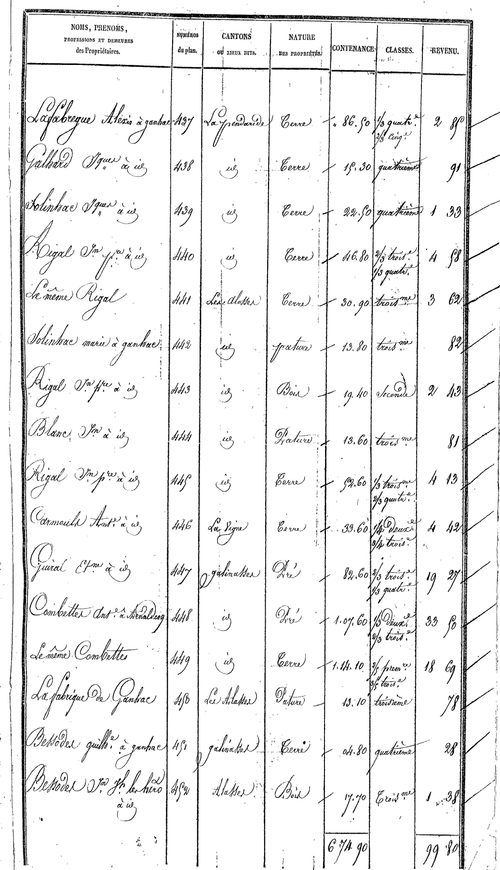 NOMS, PRENOMS, PROFESSIONS ET DEMEURES des Propriétaires. NUMÉROS du plan. CANTONS OU LIEUX DITS. NATURE DES PROPRIÉTÉS. CONTENANCE. CLASSES. REVENU.
Lafabregue Alexis à ganhac 437 Terre " 86.50 1/3 quatr.e 2 85
2/3 cinq.e
Galhard J.ques à id 438 id Terre 15.30 quatrième 91
Solinhac J.ques à id 439 id Terre 22.50 quatrième 1 33
Rigal J.n p.re à id 440 id Terre 46.80 2/3 trois.e 4 58
1/3 quatr.e
Le même Rigal 441 Les alasses Terre 30.90 trois.me 3 62
Solinhac marie à ganhac 442 id pature 13.80 trois.me 82
Rigal J.n p.re à id 443 id Bois 19.40 seconde 2 43
Blanc J.n à id 444 id Pature 13.60 trois.me 81
Rigal J.n p.re à id 445 id Terre 52.60 1/3 trois.me 4 13
2/3 quatr.e
Ant.e à id 446 La vigne Terre 33.60 1/4 deux.e 4 42
3/4 trois.e
Guiral Et.ne à id 447 galinasses Pré 82.60 2/3 trois.e 19 27
1/3 quatr.e
Combettes Ant.e à 448 id Pré 1.07.60 1/3 deux.e 33 50
2/3 trois.e
Le même Combettes 449 id Terre 1.14.10 2/5 prem.re 18 69
3/5 trois.e
La fabrique de Ganhac 450 Les Alasses Pature 13.10 troisième 78
Bessodes guilh.e à ganhac 451 galinasses Terre 04.80 quatrième 28
Bessodes J.n 452 Alasses Bois 17.70 Trois.me 1 38
à id
6 74 90 99 80